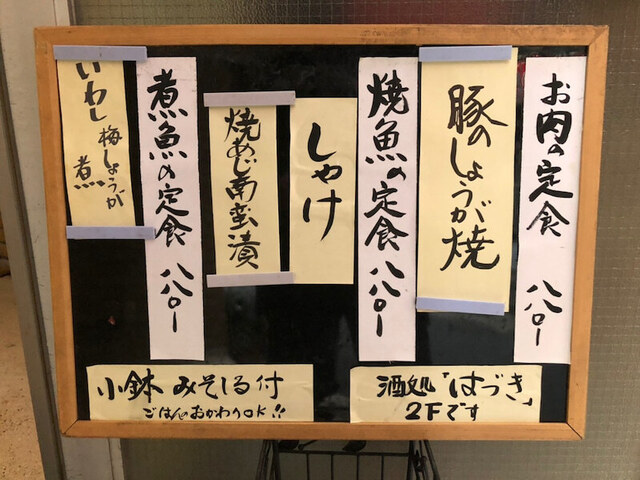 お肉の定食 八八〇ー
豚のしょうが焼
焼魚の定食 八八〇ー
しゃけ
焼あじ南蛮漬
煮魚の定食 八八〇ー
いわし梅しょうが煮
小鉢 みそしる付
ごはんのおかわりOK!!
酒処「はづき」
2Fです